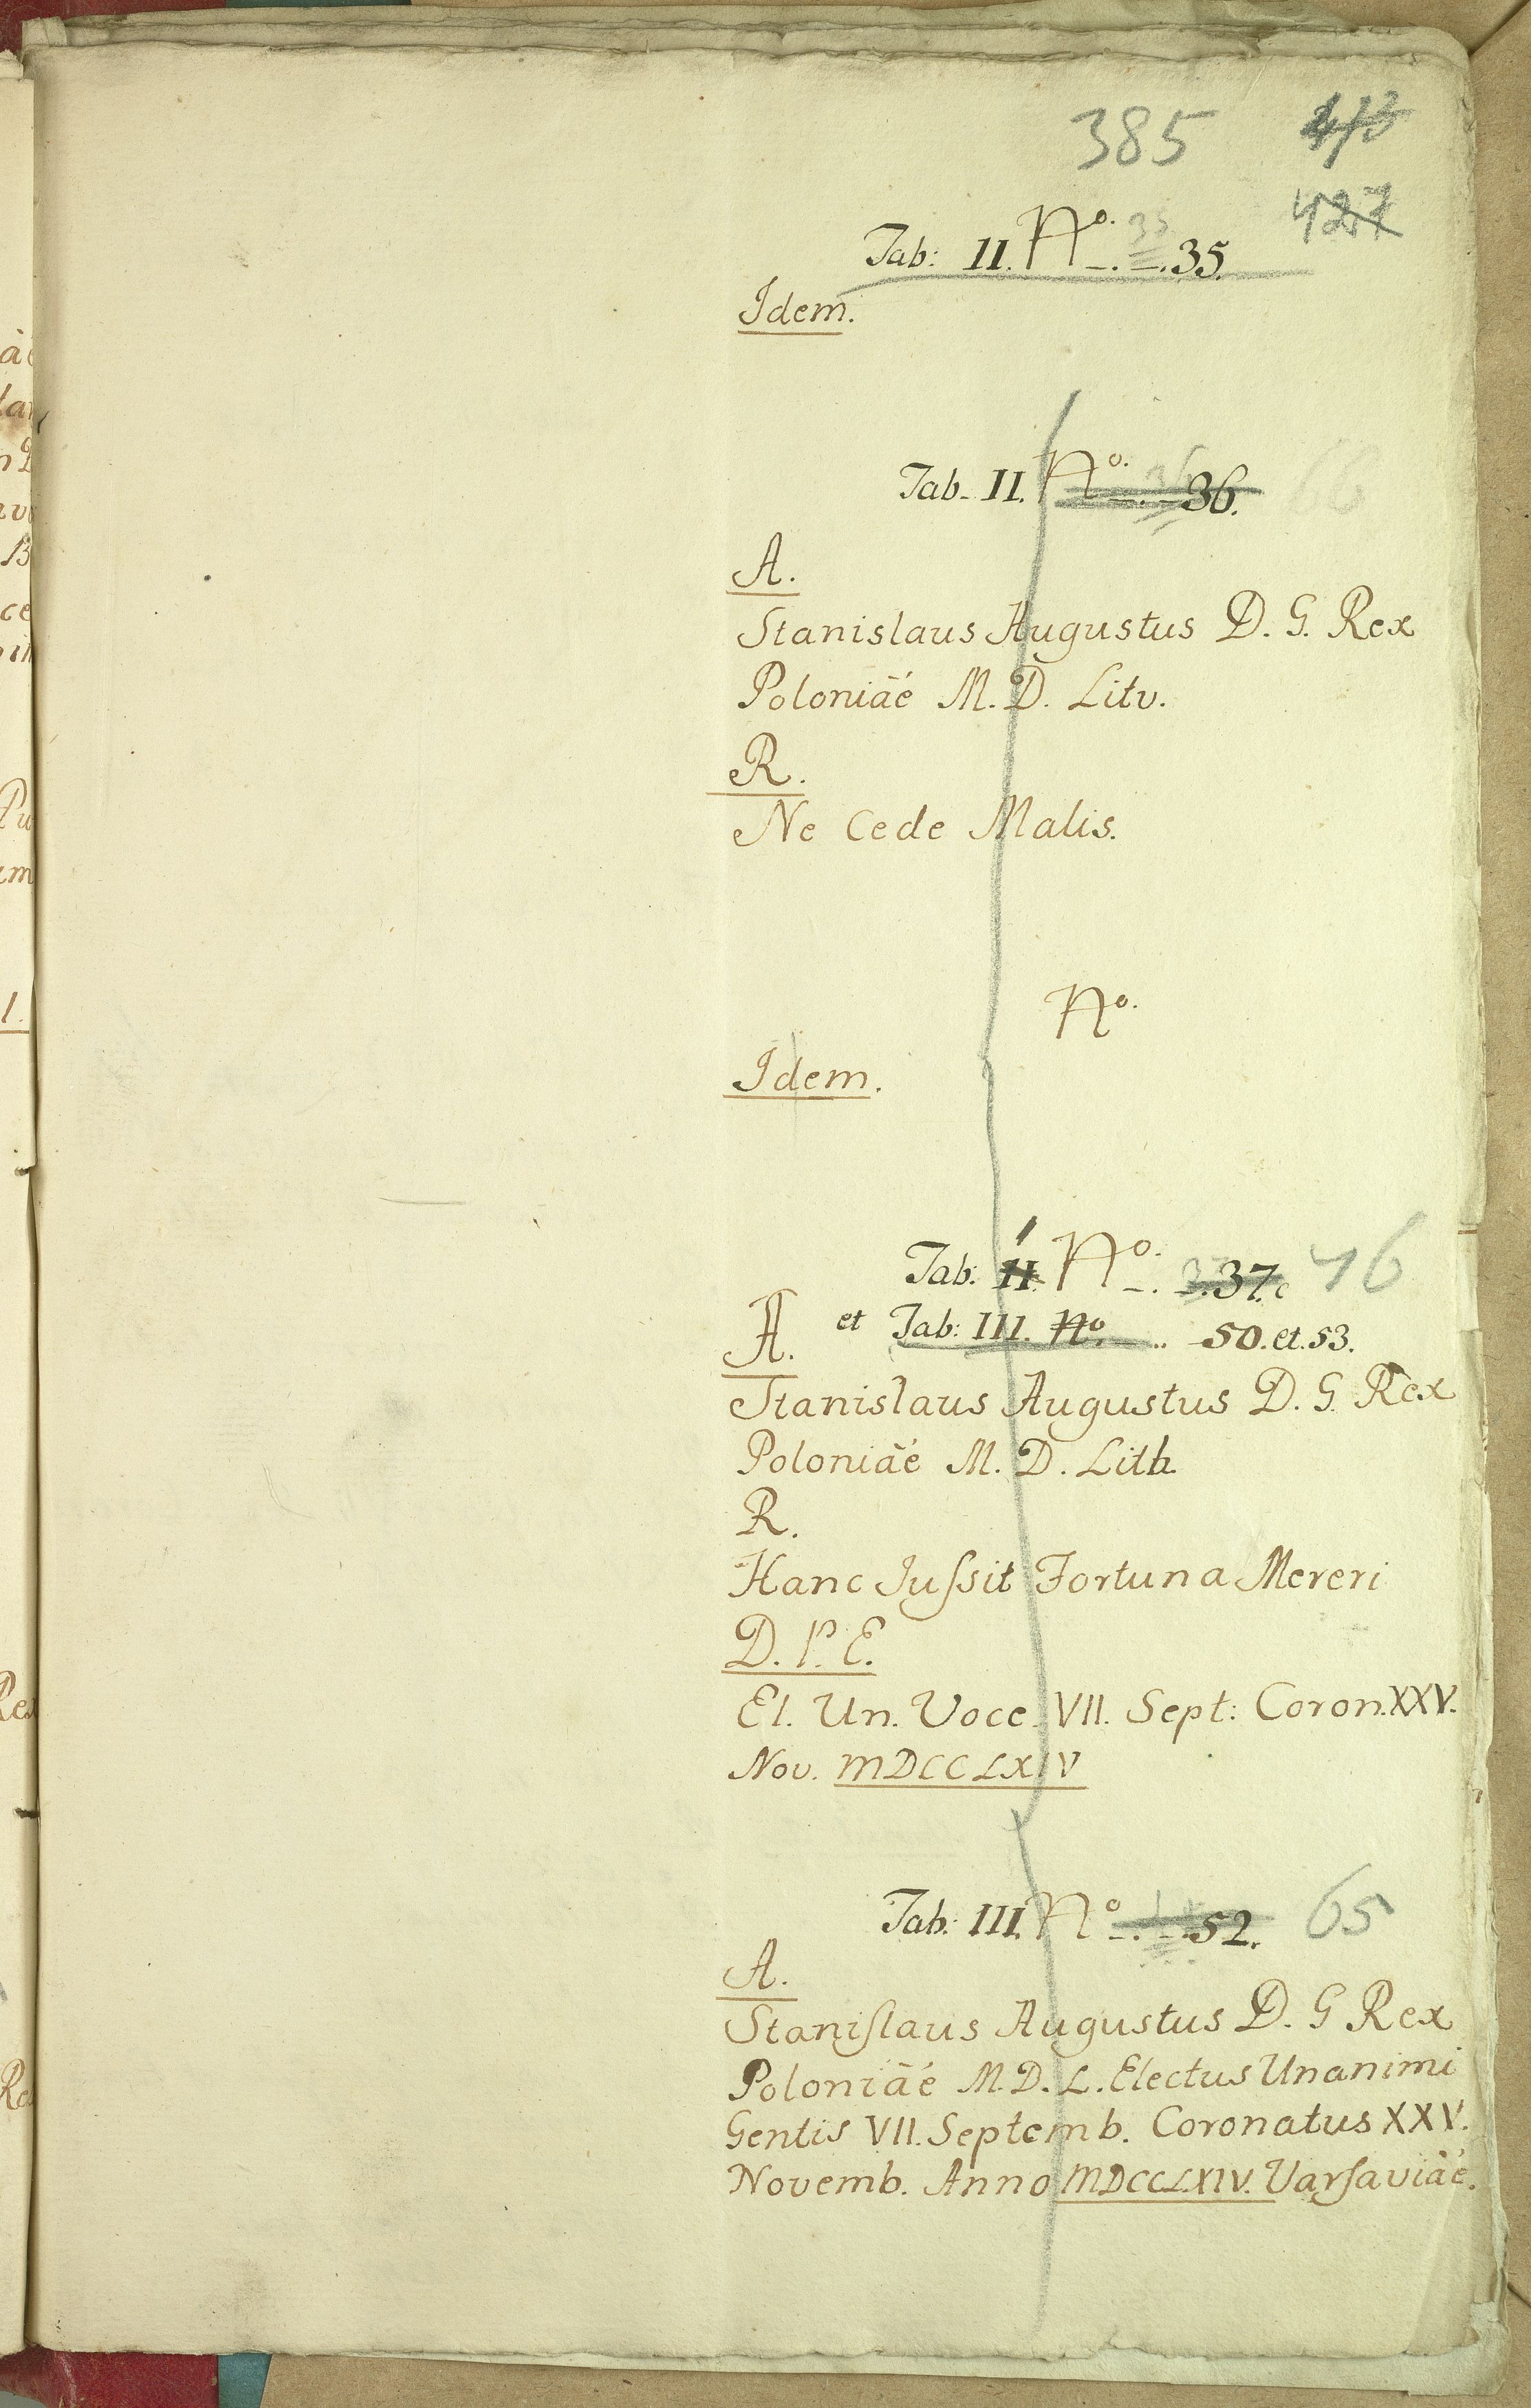 385
427
Tab: II. No. 35 35.
Idem.
Tab. II. No. 36 36. 66
A.
Stanislaus Augustus D. G. Rex
Poloniäé M. D. Litv.
R.
Ne Cede Malis.
No.
Idem.
Tab: II. No. 37 37. 46
et Tab: III. No. 50. et. 53.
A.
Stanislaus Augustus D. G. Rex
Poloniäé M. D. Lith.
R.
Hanc Juſsit Fortuna Mereri
D. P. E.
El. Un. Voce. VII. Sept: Coron. XXV.
Nov. MDCCLXIV
Tab: III. No 52. 65
A.
Staniſlaus Augustus D. G Rex
Poloniäé M. D. L. Electus Unanimi
Gentis VII. Septemb. Coronatus XXV.
Novemb. Anno MDCCLXIV. Varſaviäé.